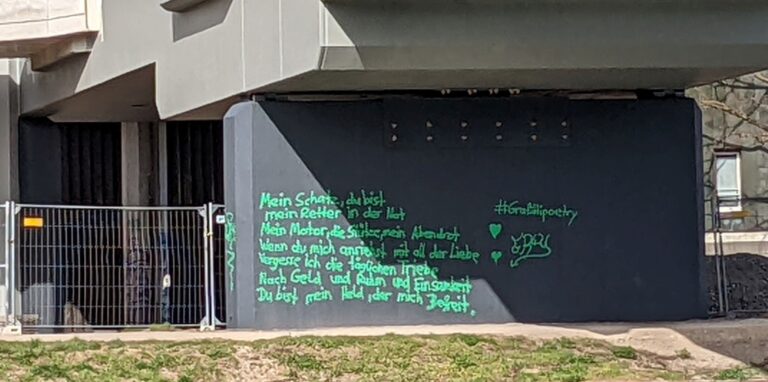 Mein Schatz, du bist
mein Retter in der Not
Mein Motor, die Stütze, mein Abendrot
Wenn du mich anniest mit all der Liebe
Vergesse ich die täglichen Triebe
Nach Geld und Ruhm und Einsamkeit
Du bist mein Held, der mich Befreit.
#Graffitipoetry